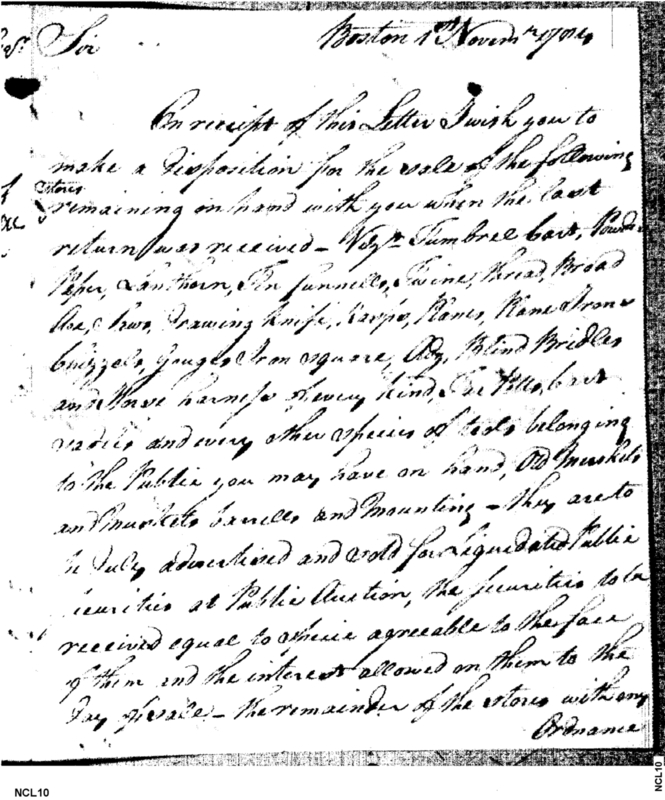 Sir Boston 1st Novemr 1784
On receipt of this Letter I wish you to
make a disposition for the sale of the following
stores
remaining on hand with you when the last
return was received – Vizt. Tumbrel Cart, Powder
Lanthorn, Tin funnells, Twine, thread, Broad
Axe, Saws, Drawing Knife, Rasps, Planes, Plane Irons
Gouges Iron square, Adz, Blind Bridles
and Horse harness of every kind, Tar Potts, Cart
and every other species of tools belonging
to the Public you may have on hand, Old Muskets
and muskets barrells and mounting – they are to
be duly advertised and sold for liquidated Public
securities at Public Auction, the securities to be
received equal to specie agreeable to the face
of them and the interest allowed on them to the
day of sale – the remainder of the stores with any
Ordnance
NCL10
NCL10